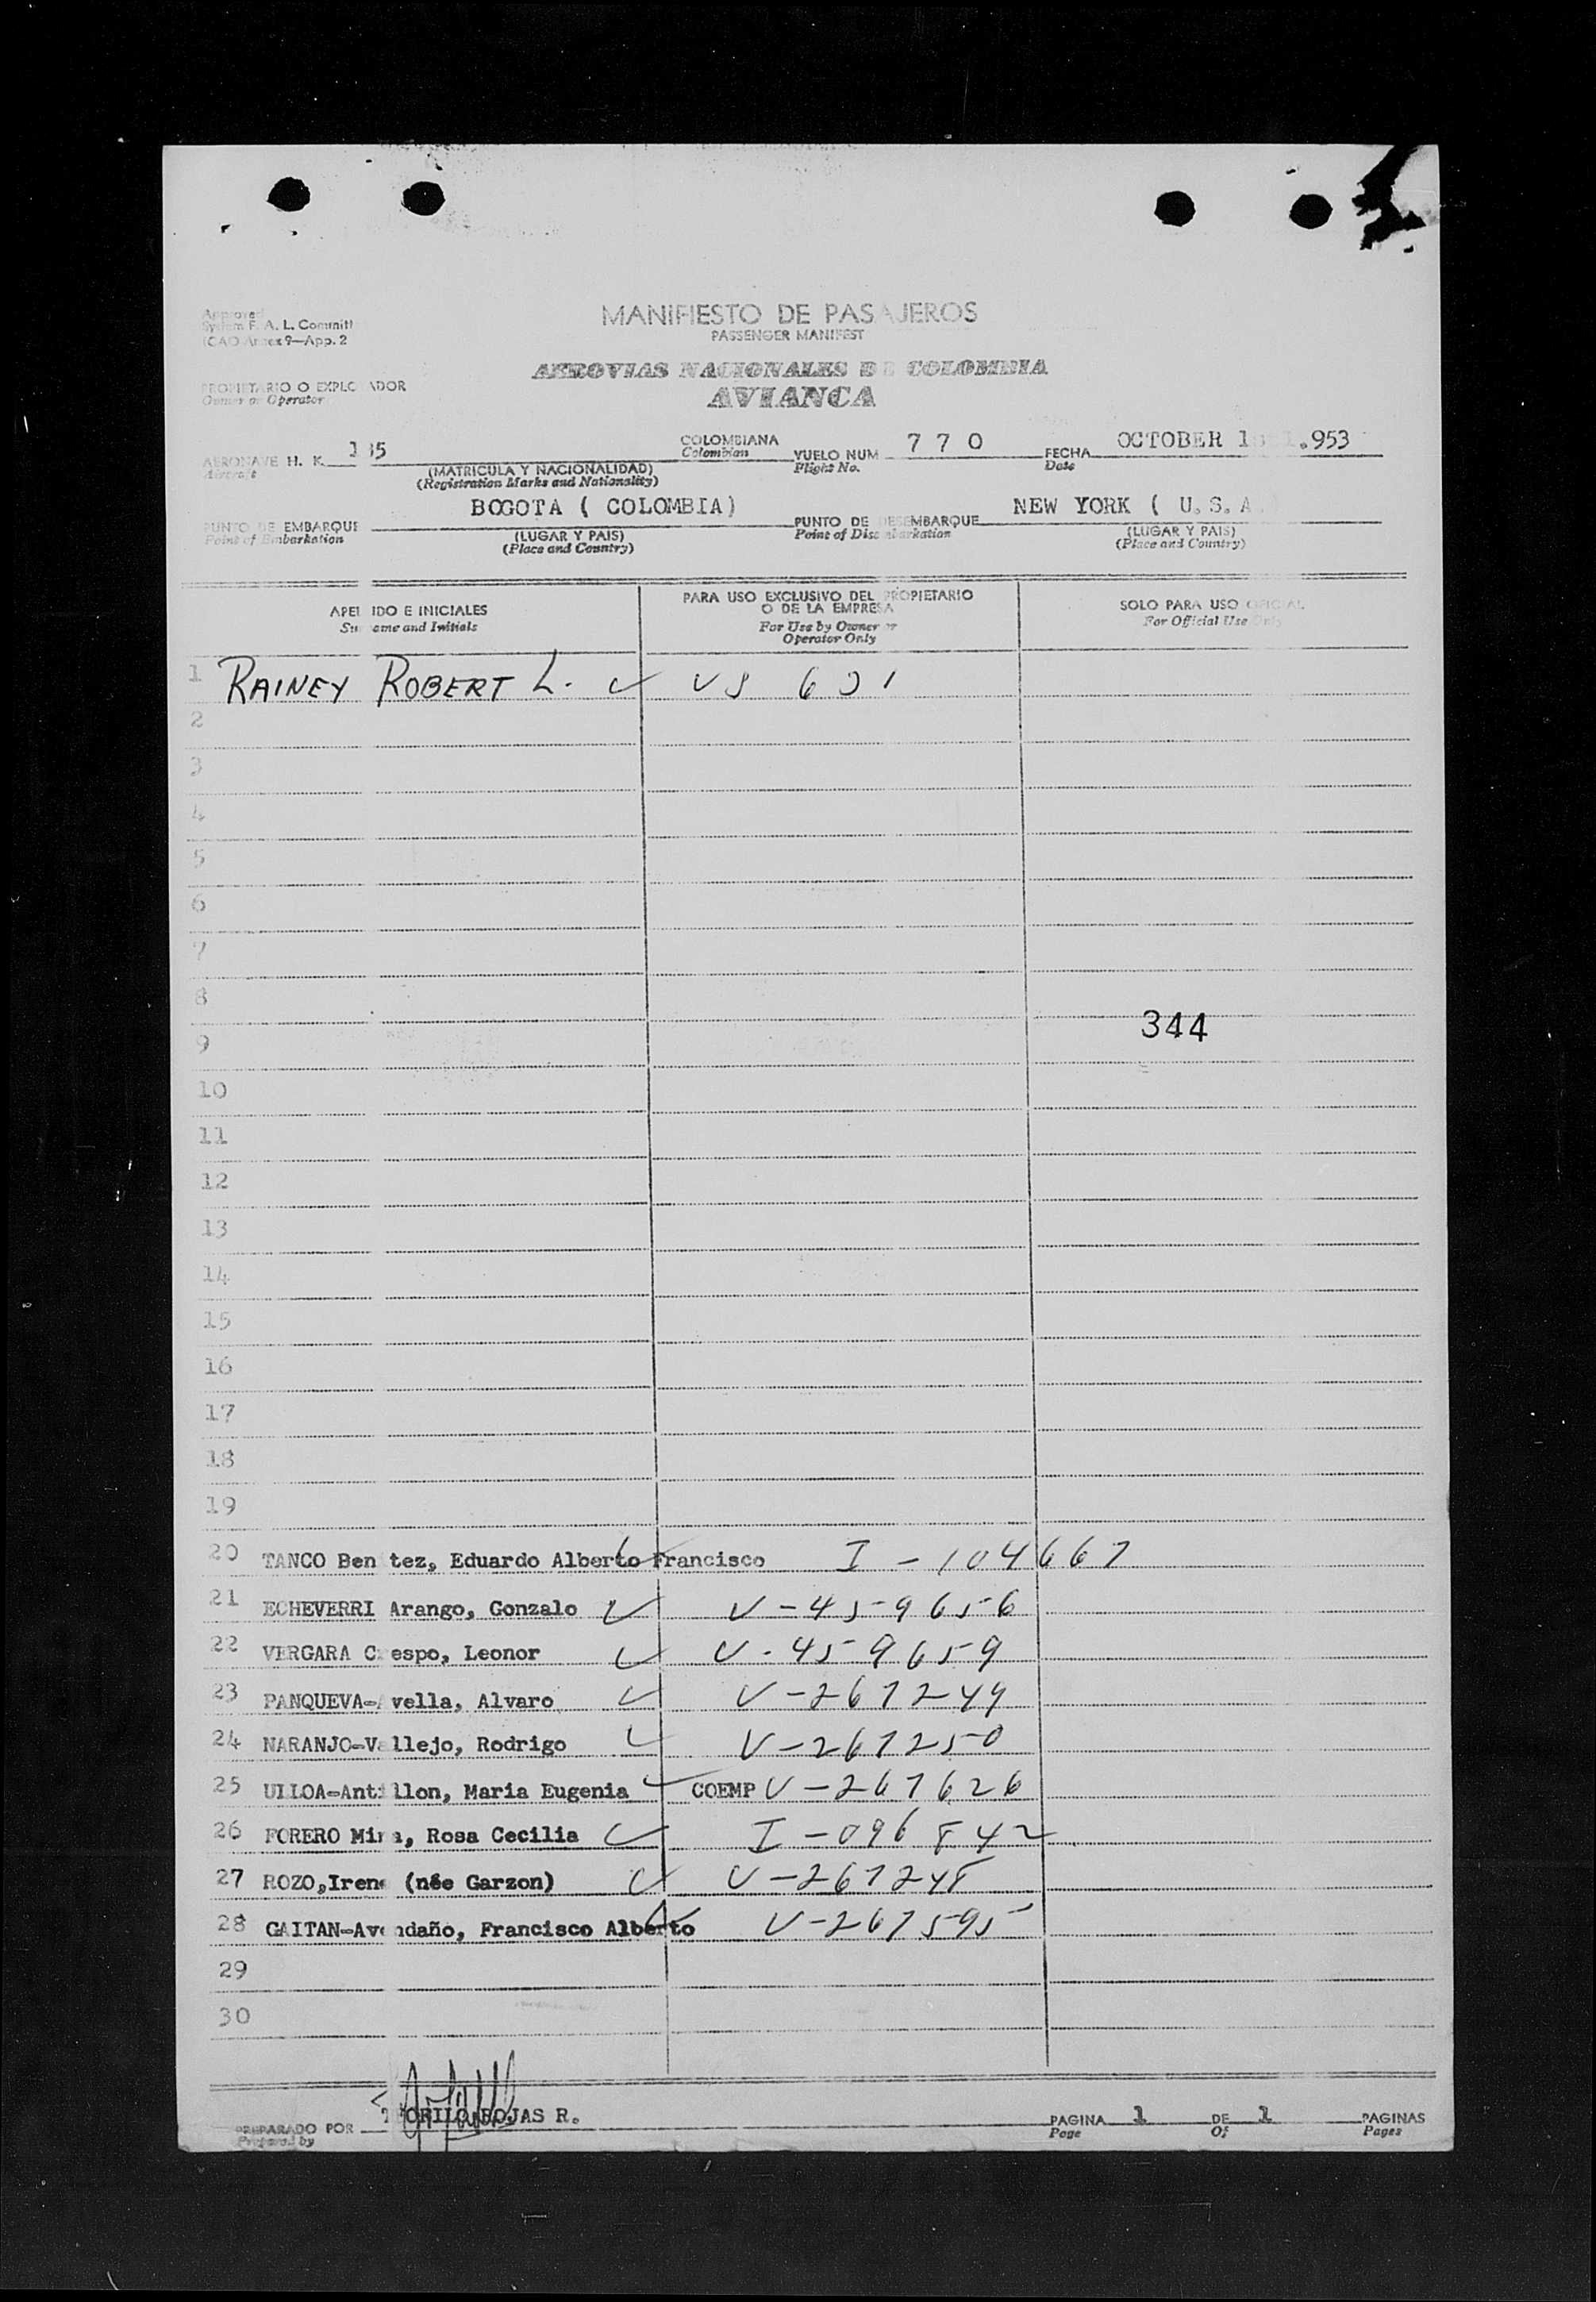 MANIFIESTO DE PASAJEROS
PASSENGER MANIFEST
System F. A. L. Comunitt
ICAO Annex 9—App. 2
AEROVIAS NACIONALES DE COLOMBIA
AVIANCA
PROPIETARIO O EXPLO ADOR
Owner or Operator
AERONAVE H. K.
Aircraft
(MATRICULA Y NACIONALIDAD)
(Registration Marks and Nationality)
COLOMBIANA
Colombian
VUELO NUM 7 7 0
Flight No.
FECHA OCTOBER 953
Date
PUNTO DE EMBARQUE BOGOTA ( COLOMBIA)
Point of Embarkation
(LUGAR Y PAIS)
(Place and Country)
PUNTO DE DESEMBARQUE NEW YORK ( U.S.A.
Point of Disembarkation
(LUGAR Y PAIS)
(Place and Country)
APEL IDO E INICIALES
Su ame and Initials
PARA USO EXCLUSIVO DEL PROPIETARIO
O DE LA EMPRESA
For Use by Owner or
Operator Only
SOLO PARA USO OFICIAL
For Official Use Only
1 RAINEY ROBERT L.
2
3
4
5
6
7
8
344
9
10
11
12
13
14
15
16
17
18
19
20 TANCO Ben tez, Eduardo Alberto Francisco I - 104667
21 ECHEVERRI Arango, Gonzalo V - 459656
22 VERGARA C espo, Leonor V - 459659
23 PANQUEVA-Avella, Alvaro V - 267249
24 NARANJO-Vallejo, Rodrigo V - 267250
25 ULLOA-Anti llon, Maria Eugenia COEMP V - 267626
26 FORERO Mira, Rosa Cecilia I - 096842
27 ROZO,Irene (née Garzon) V - 267248
28 GAITAN-Avendaño, Francisco Alberto V - 267595
29
30
PREPARADO POR ROJAS R.
Prepared by
PAGINA 1 DE 1 PAGINAS
Page Of Pages